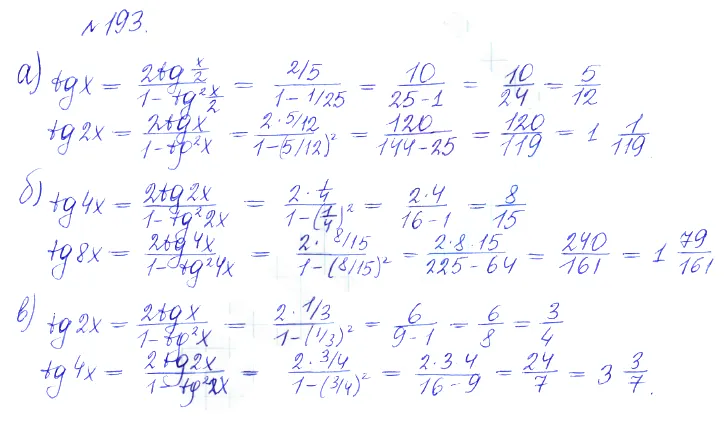 №193.
а) tgx = 2tg x/2 / 1 - tg² x/2 = 2/5 / 1 - 1/25 = 10 / 25 - 1 = 10/24 = 5/12
tg2x = 2tgx / 1 - tg²x = 2·5/12 / 1 - (5/12)² = 120 / 144 - 25 = 120/119 = 1 1/119.
б) tg4x = 2tg2x / 1 - tg²2x = 2·1/4 / 1 - (1/4)² = 2·4 / 16 - 1 = 8/15
tg8x = 2tg4x / 1 - tg²4x = 2·8/15 / 1 - (8/15)² = 2·8·15 / 225 - 64 = 240/161 = 1 79/161
в) tg2x = 2tgx / 1 - tg²x = 2·1/3 / 1 - (1/3)² = 6 / 9 - 1 = 6/8 = 3/4
tg4x = 2tg2x / 1 - tg²2x = 2·3/4 / 1 - (3/4)² = 2·3 4 / 16 - 9 = 24/7 = 3 3/7.